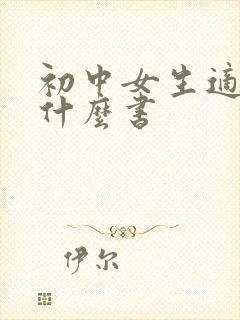 初中女生适
什麼书
伊尔